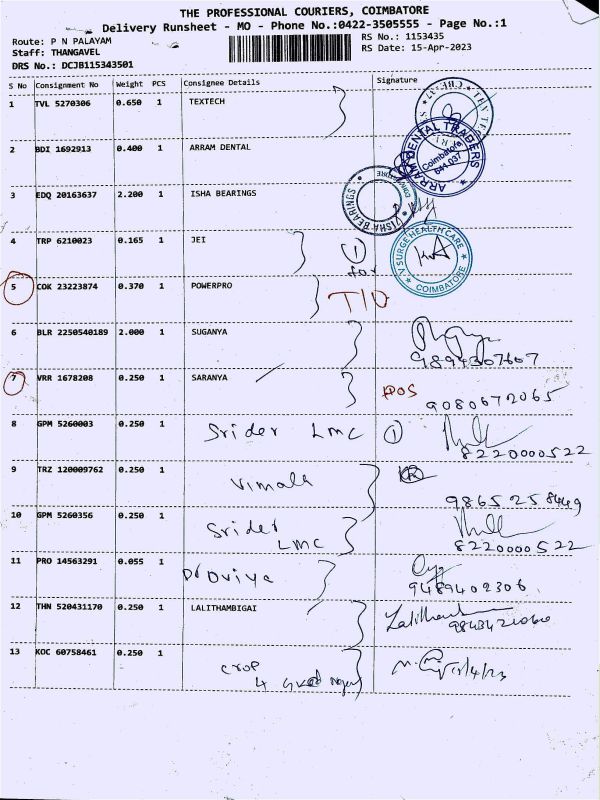 THE PROFESSIONAL COURIERS, COIMBATORE
Delivery Runsheet - MO - Phone No.:0422-3505555 - Page No.:1
Route: P N PALAYAM
RS No.: 1153435
Staff: THANGAVEL
RS Date: 15-Apr-2023
DRS No.: DCJB115343501
S No Consignment No Weight PCS Consignee Details Signature
1 TVL 5270306 0.650 1 TEXTECH
2 BDI 1692913 0.400 1 ARRAM DENTAL
ARRAM DENTAL TRADERS
Coimbatore
641 037
3 EDQ 20163637 2.200 1 ISHA BEARINGS
VISHA BEARINGS
4 TRP 6210023 0.165 1 JEI 1
for
V SURGE HEALTH CARE
COIMBATORE
5 COK 23223874 0.370 1 POWERPRO
T/D
6 BLR 2250540189 2.000 1 SUGANYA
9894307607
7 VRR 1678208 0.250 1 SARANYA
POS 9080672065
8 GPM 5260003 0.250 1 Srider LMC 1
8220000522
9 TRZ 120009762 0.250 1 Vimala
9865258449
10 GPM 5260356 0.250 1 Srider
LMC 8220000522
11 PRO 14563291 0.055 1 Dr Oviya
9489402306
12 THN 520431170 0.250 1 LALITHAMBIGAI
13 KOC 60758461 0.250 1 crop
4